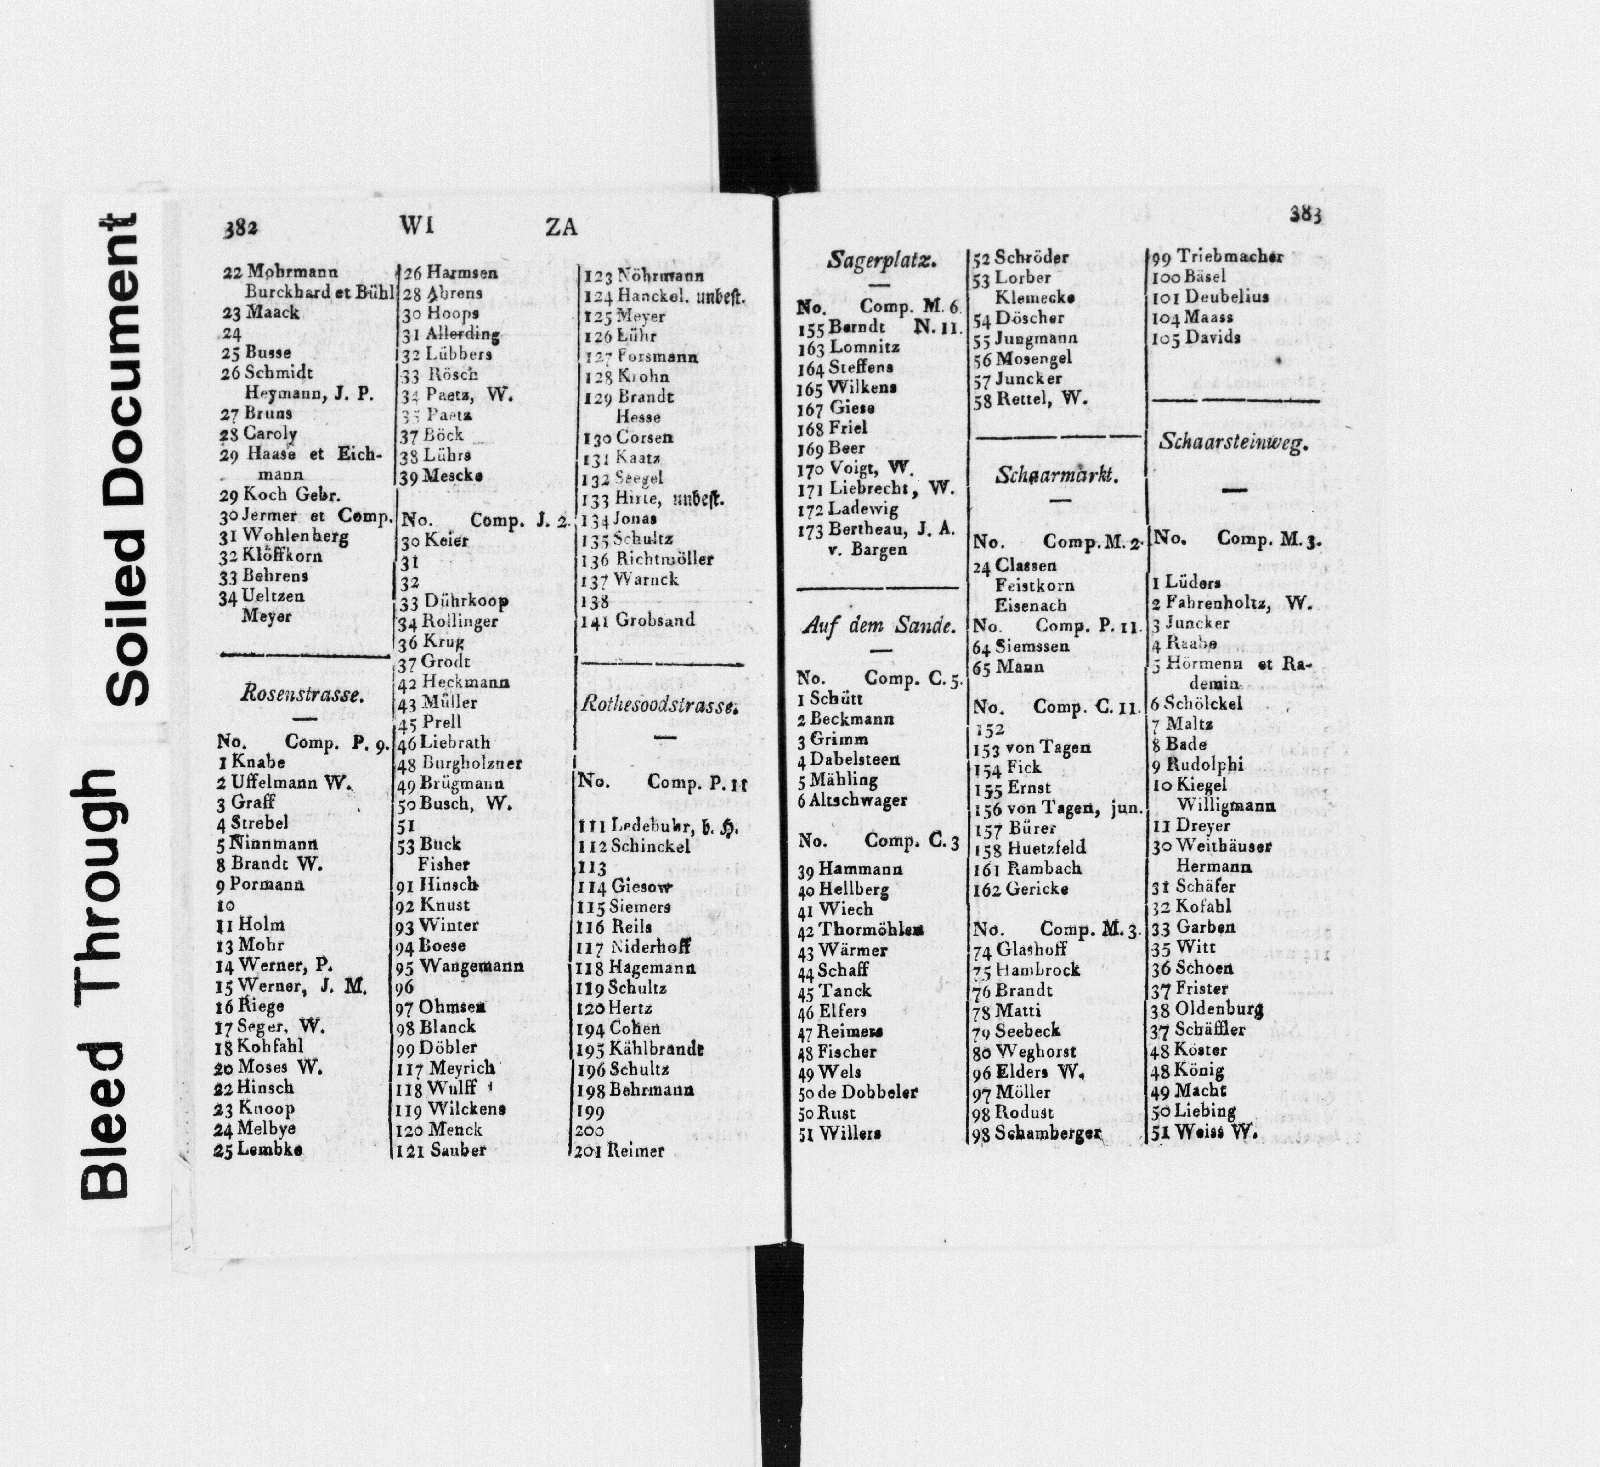 Bleed Through Soiled Document
382 WI ZA
22 Mohrmann
Burckhard et Bühl
23 Maack
24
25 Busse
26 Schmidt
Heymann, J. P.
27 Bruns
28 Caroly
29 Haase et Eich-
mann
29 Koch Gebr.
30 Jermer et Comp.
31 Wohlenberg
32 Klöffkorn
33 Behrens
34 Ueltzen
Meyer
Rosenstrasse.
No. Comp. P. 9.
1 Knabe
2 Uffelmann W.
3 Graff
4 Strebel
5 Ninnmann
8 Brandt W.
9 Pormann
10
11 Holm
13 Mohr
14 Werner, P.
15 Werner, J. M.
16 Riege
17 Seger, W.
18 Kohfahl
20 Moses W.
22 Hinsch
23 Knoop
24 Melbye
25 Lembke
26 Harmsen
28 Ahrens
30 Hoops
31 Allerding
32 Lübbers
33 Rösch
34 Paetz, W.
35 Paetz
37 Böck
38 Lührs
39 Mescke
No. Comp. J. 2.
30 Keier
31
32
33 Dührkoop
34 Rollinger
36 Krug
37 Grodt
42 Heckmann
43 Müller
45 Prell
46 Liebrath
48 Burgholzner
49 Brügmann
50 Busch, W.
51
53 Buck
Fisher
91 Hinsch
92 Knust
93 Winter
94 Boese
95 Wangemann
96
97 Ohmsen
98 Blanck
99 Döbler
117 Meyrich
118 Wulff
119 Wilckens
120 Menck
121 Sauber
123 Nöhrmann
124 Hanckel, unbest.
125 Meyer
126 Lühr
127 Forsmann
128 Krohn
129 Brandt
Hesse
130 Corsen
131 Kaatz
132 Seegel
133 Hirte, unbest.
134 Jonas
135 Schultz
136 Richtmöller
137 Warnck
138
141 Grobsand
Rothesoodstrasse.
No. Comp. P. 11
111 Ledebuhr, b. H.
112 Schinckel
113
114 Giesow
115 Siemers
116 Reils
117 Niderhoff
118 Hagemann
119 Schultz
120 Hertz
194 Cohen
195 Kählbrandt
196 Schultz
198 Behrmann
199
200
201 Reimer
383
Sagerplatz.
No. Comp. M. 6.
155 Berndt N. 11.
163 Lomnitz
164 Steffens
165 Wilkens
167 Giese
168 Friel
169 Beer
170 Voigt, W.
171 Liebrecht, W.
172 Ladewig
173 Bertheau, J. A.
v. Bargen
Auf dem Sande.
No. Comp. C. 5.
1 Schütt
2 Beckmann
3 Grimm
4 Dabelsteen
5 Mähling
6 Altschwager
No. Comp. C. 3
39 Hammann
40 Hellberg
41 Wiech
42 Thormöhlen
43 Wärmer
44 Schaff
45 Tanck
46 Elfers
47 Reimers
48 Fischer
49 Wels
50 de Dobbeler
50 Rust
51 Willers
52 Schröder
53 Lorber
Klemecke
54 Döscher
55 Jungmann
56 Mosengel
57 Juncker
58 Rettel, W.
Schaarmarkt.
No. Comp. M. 2.
24 Classen
Feistkorn
Eisenach
No. Comp. P. 11.
64 Siemssen
65 Mann
No. Comp. C. 11.
152
153 von Tagen
154 Fick
155 Ernst
156 von Tagen, jun.
157 Bürer
158 Huetzfeld
161 Rambach
162 Gericke
No. Comp. M. 3.
74 Glashoff
75 Hambrock
76 Brandt
78 Matti
79 Seebeck
80 Weghorst
96 Elders W.
97 Möller
98 Rodust
98 Schamberger
99 Triebmacher
100 Bäsel
101 Deubelius
104 Maass
105 Davids
Schaarsteinweg.
No. Comp. M. 3.
1 Lüders
2 Fahrenholtz, W.
3 Juncker
4 Raabe
5 Hörmenn et Ra-
demin
6 Schölckel
7 Maltz
8 Bade
9 Rudolphi
10 Kiegel
Willigmann
11 Dreyer
30 Weithäuser
Hermann
31 Schäfer
32 Kofahl
33 Garben
35 Witt
36 Schoen
37 Frister
38 Oldenburg
37 Schäffler
48 Köster
48 König
49 Macht
50 Liebing
51 Weiss W.